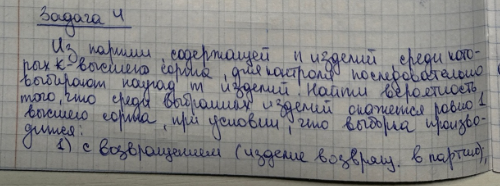 Задача 4
Из партии, содержащей n изделий, среди кото-
рых k высшего сорта, для контроля последовательно
выбирают наугад m изделий. Найти вероятность
того, что среди выбранных изделий окажется ровно l
высшего сорта, при условии, что выборка произво-
дится:
1) с возвращением (изделие возвращ. в партию),